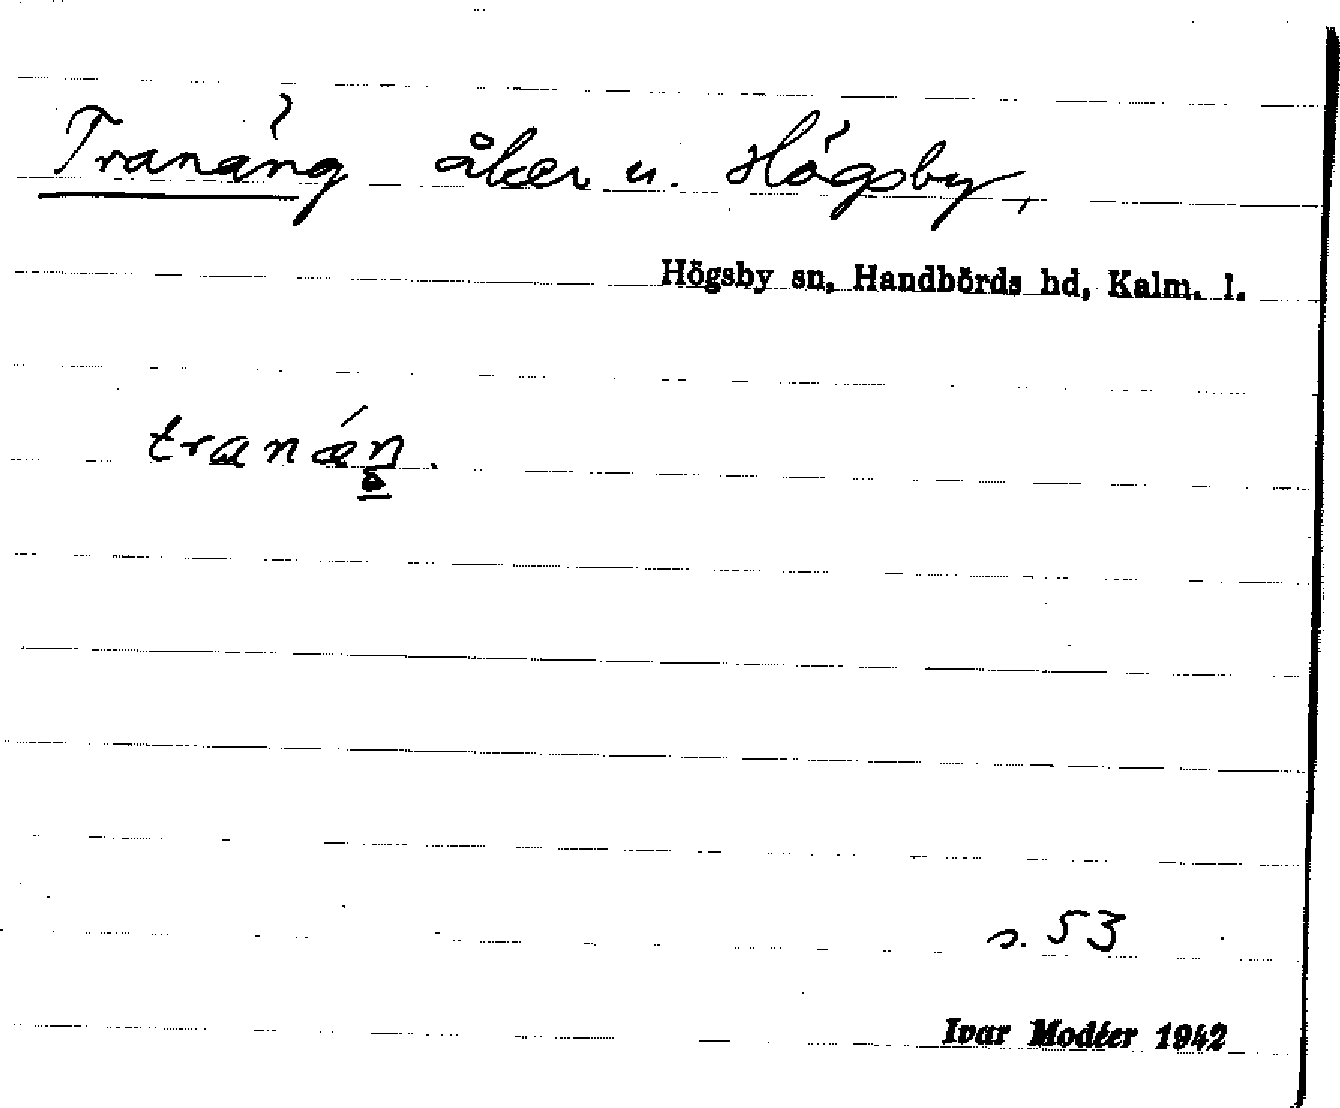 Tranäng åker u. Högsby,
Högsby sn, Handbörds hd, Kalm. l.
s. 53
Ivar Modéer 1942